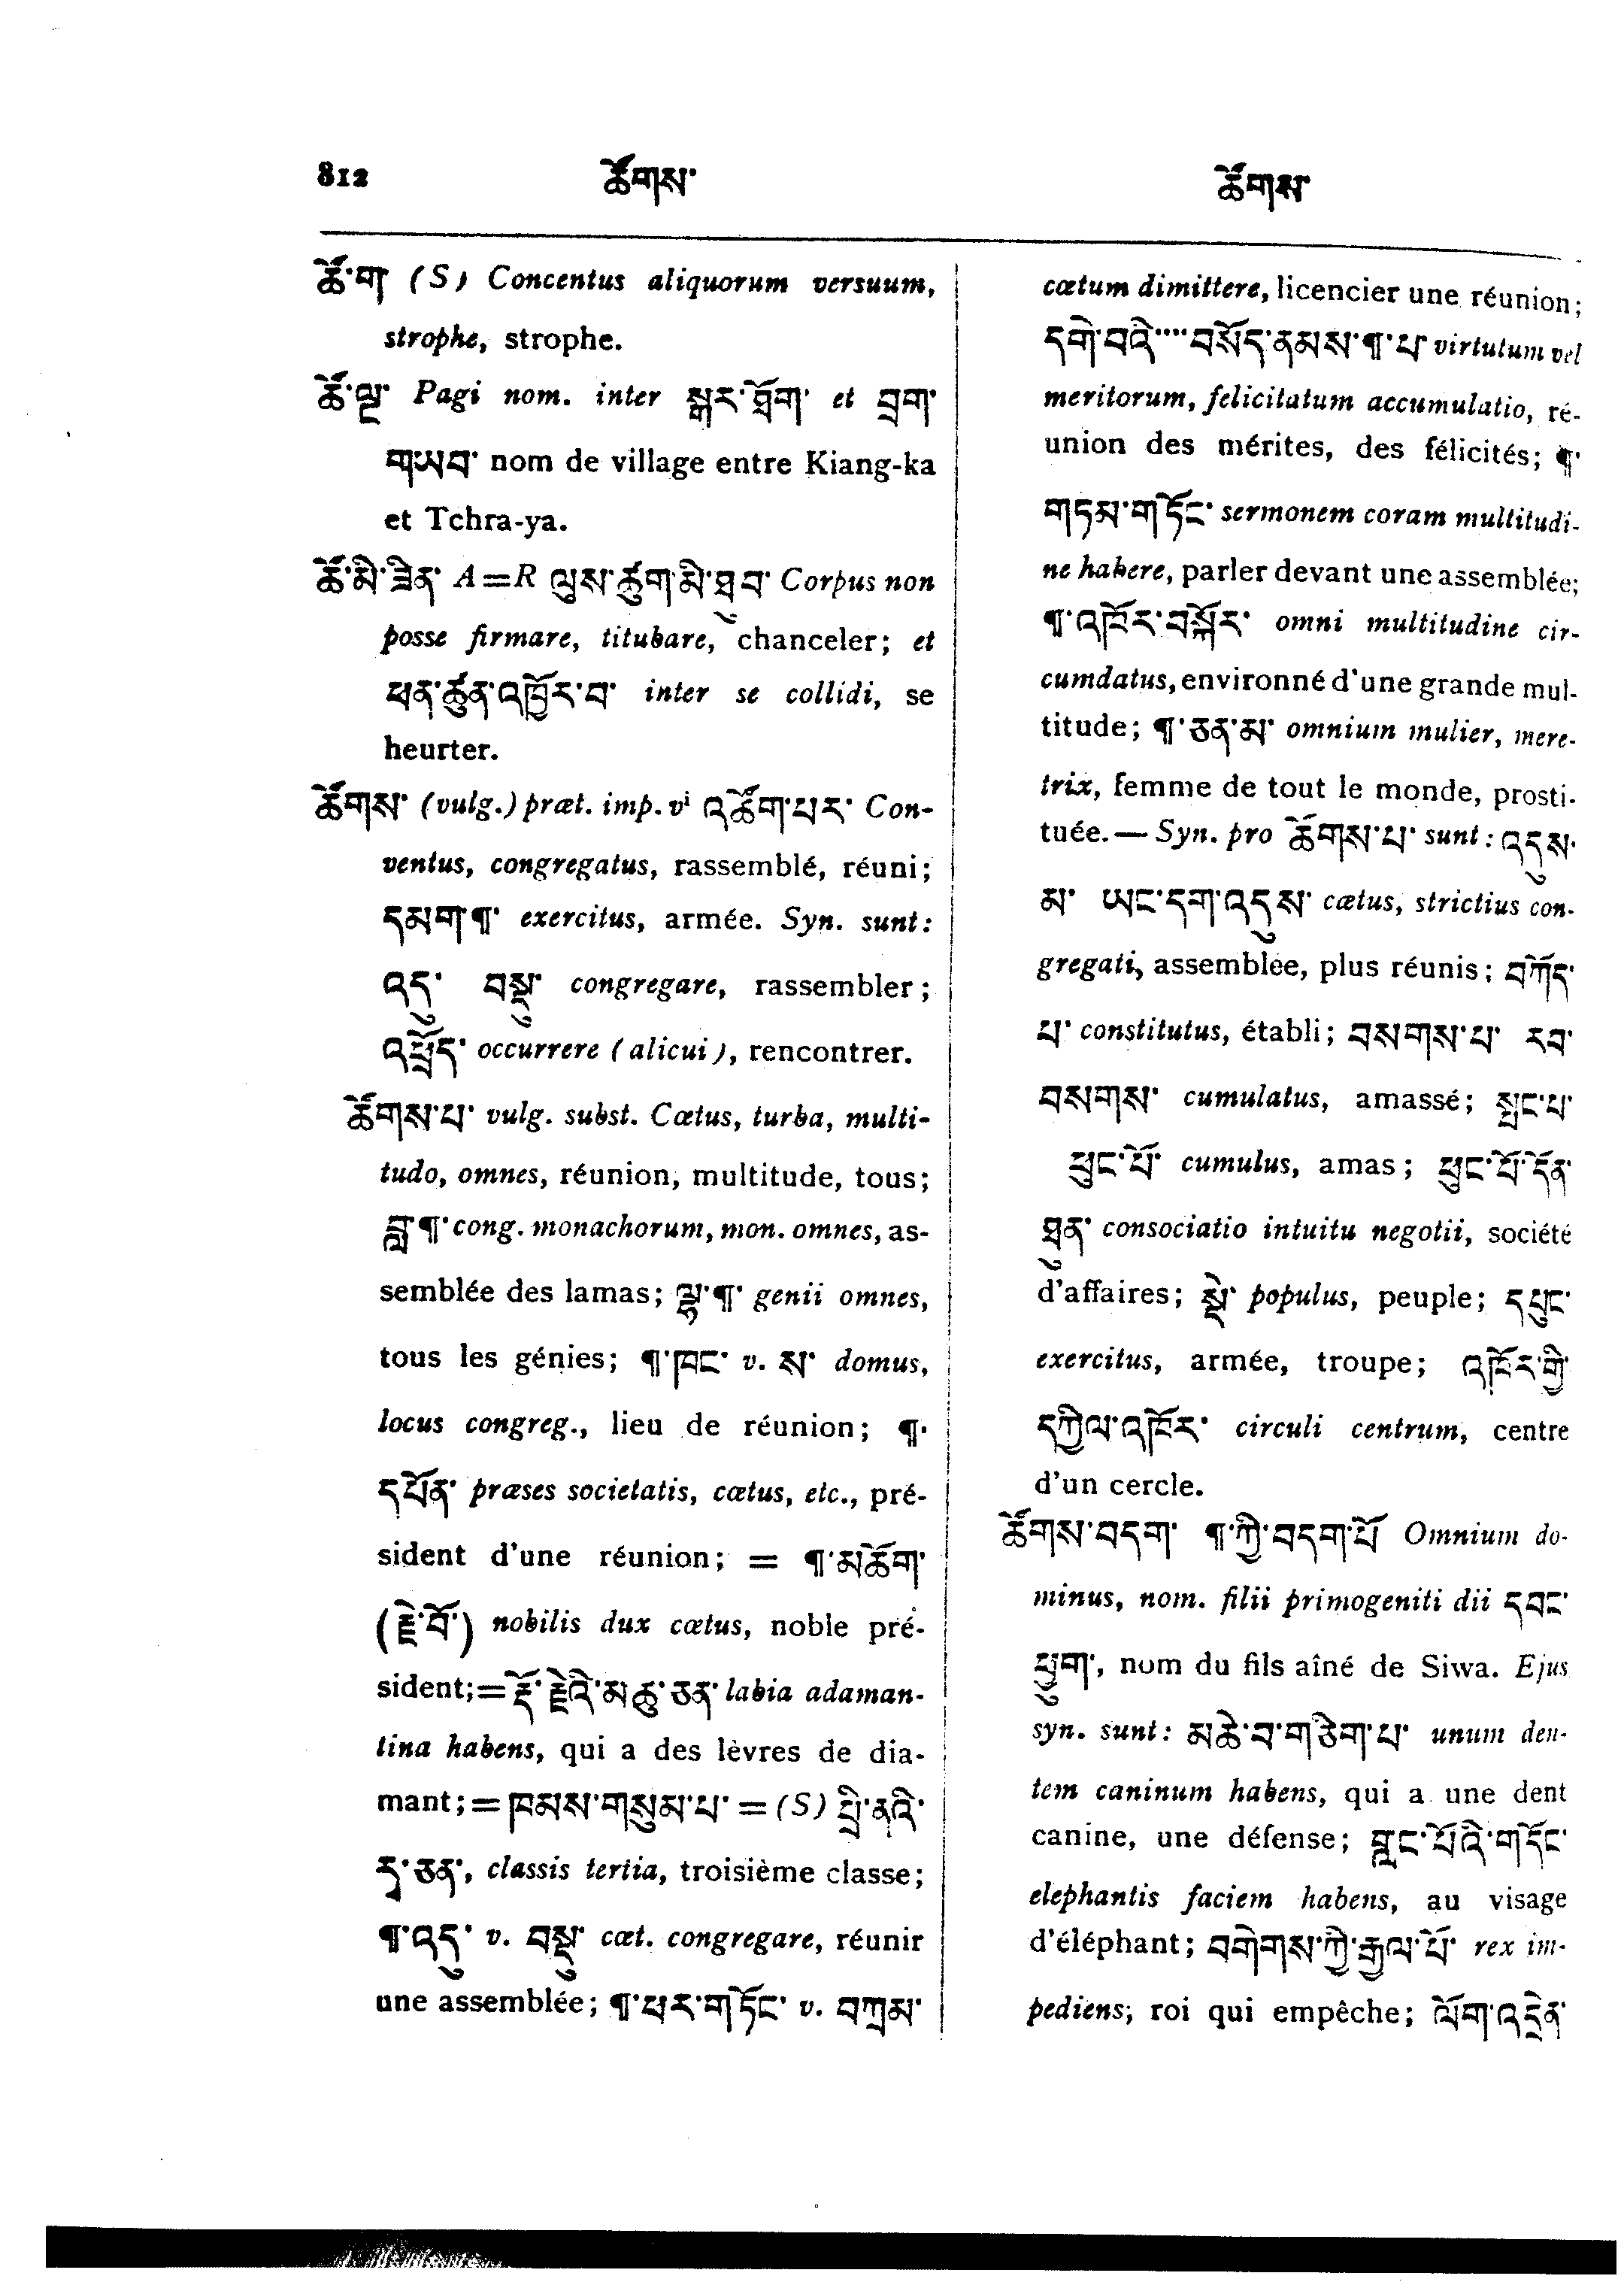 812 ཚོགས་ ཚོགས་
ཚོ་ག (S) Concentus aliquorum versuum,
strophe, strophe.
ཚོ་ལྔ་ Pagi nom. inter སྒར་ཐོག་ et བྲག་
གཡབ་ nom de village entre Kiang-ka
et Tchra-ya.
ཚོ་མི་ཟིན་ A=R ལུས་ཚུག་མི་ཐུབ་ Corpus non
posse firmare, titubare, chanceler; et
ཕན་ཚུན་འཁྱོར་བ་ inter se collidi, se
heurter.
ཚོགས་ (vulg.) præt. imp. vⁱ འཚོག་པར་ Con-
ventus, congregatus, rassemblé, réuni;
དམག་¶་ exercitus, armée. Syn. sunt:
འདུ་ བསྡུ་ congregare, rassembler;
འཕྲོད་ occurrere (alicui), rencontrer.
ཚོགས་པ་ vulg. subst. Cœtus, turba, multi-
tudo, omnes, réunion, multitude, tous;
བླ་¶་ cong. monachorum, mon. omnes, as-
semblée des lamas; ལྷ་¶་ genii omnes,
tous les génies; ¶་ཁང་ v. ས་ domus,
locus congreg., lieu de réunion; ¶་
དཔོན་ præses societatis, cœtus, etc., pré-
sident d'une réunion; = ¶་མཆོག་
(རྗེ་བོ་) nobilis dux cœtus, noble pré-
sident;=རྡོ་རྗེའི་མཆུ་ཅན་ labia adaman-
tina habens, qui a des lèvres de dia-
mant;=ཁམས་གསུམ་པ་ = (S) པྲི་ནའི་
དྲ་ཅན་, classis tertia, troisième classe;
¶་འདུ་ v. བསྡུ་ cœt. congregare, réunir
une assemblée; ¶་ཕར་གཏོང་ v. བཀྲམ་
cœtum dimittere, licencier une réunion;
དགེ་བའི་'''' བསོད་ནམས་¶་པ་ virtutum vel
meritorum, felicitatum accumulatio, ré-
union des mérites, des félicités; ¶་
གཏམ་གཏོང་ sermonem coram multitudi-
ne habere, parler devant une assemblée;
¶་འཁོར་བསྐོར་ omni multitudine cir-
cumdatus, environné d'une grande mul-
titude; ¶་ཅན་མ་ omnium mulier, mere-
trix, femme de tout le monde, prosti-
tuée.— Syn. pro ཚོགས་པ་ sunt: འདུས་
མ་ ཡང་དག་འདུས་ cœtus, strictius con-
gregati, assemblée, plus réunis; བཀོད་
པ་ constitutus, établi; བསགས་པ་ རབ་
བསགས་ cumulatus, amassé; སྤུང་པ་
ཕུང་པོ་ cumulus, amas; ཕུང་པོ་དོན་
ཐུན་ consociatio intuitu negotii, société
d'affaires; སྡེ་ populus, peuple; དཔུང་
exercitus, armée, troupe; འཁོར་གྱི་
དཀྱིལ་འཁོར་ circuli centrum, centre
d'un cercle.
ཚོགས་བདག་ ¶་ཀྱི་བདག་པོ Omnium do-
minus, nom. filii primogeniti dii དབང་
ཕྱུག་, nom du fils aîné de Siwa. Ejus
syn. sunt: མཆེ་བ་གཅིག་པ་ unum den-
tem caninum habens, qui a une dent
canine, une défense; གླང་པོའི་གདོང་
elephantis faciem habens, au visage
d'éléphant; བགེགས་ཀྱི་རྒྱལ་པོ་ rex im-
pediens, roi qui empêche; ལོག་འདྲེན་